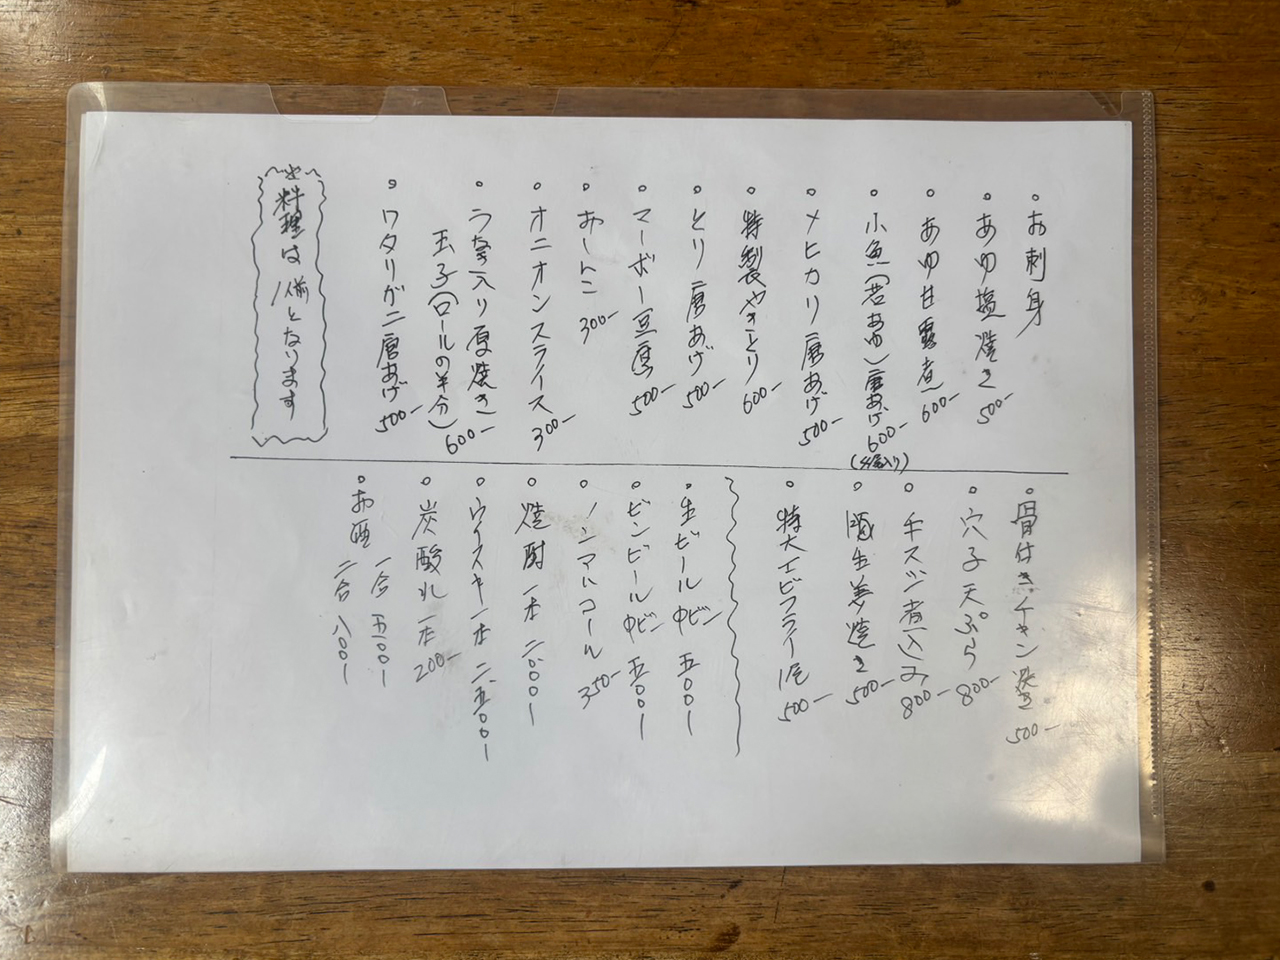 ・お刺身
・あゆ塩焼き 500-
・あゆ甘露煮 600-
・小魚(若あゆ)唐あげ 600-
(4尾入り)
・メヒカリ唐あげ 500-
・特製やきとり 600-
・とり唐あげ 500-
・マーボー豆腐 500-
・おしんこ 300-
・オニオンスライス 300-
・うなぎ入り厚焼き
玉子(ロールの半分) 600-
・ワタリガニ唐あげ 500-
料理は1人前となります
・骨付きチキン焼き 500-
・穴子天ぷら 800-
・牛スジ煮込み 800-
・豚生姜焼き 500-
・特大エビフライ1尾 500-
・生ビール 中ビン 五〇〇-
・ビンビール 中ビン 五〇〇-
・ノンアルコール 350-
・焼酎 一本 二、〇〇〇-
・ウイスキー 一本 二、五〇〇-
・炭酸水 一本 200-
・お酒 一合 五〇〇-
二合 八〇〇-